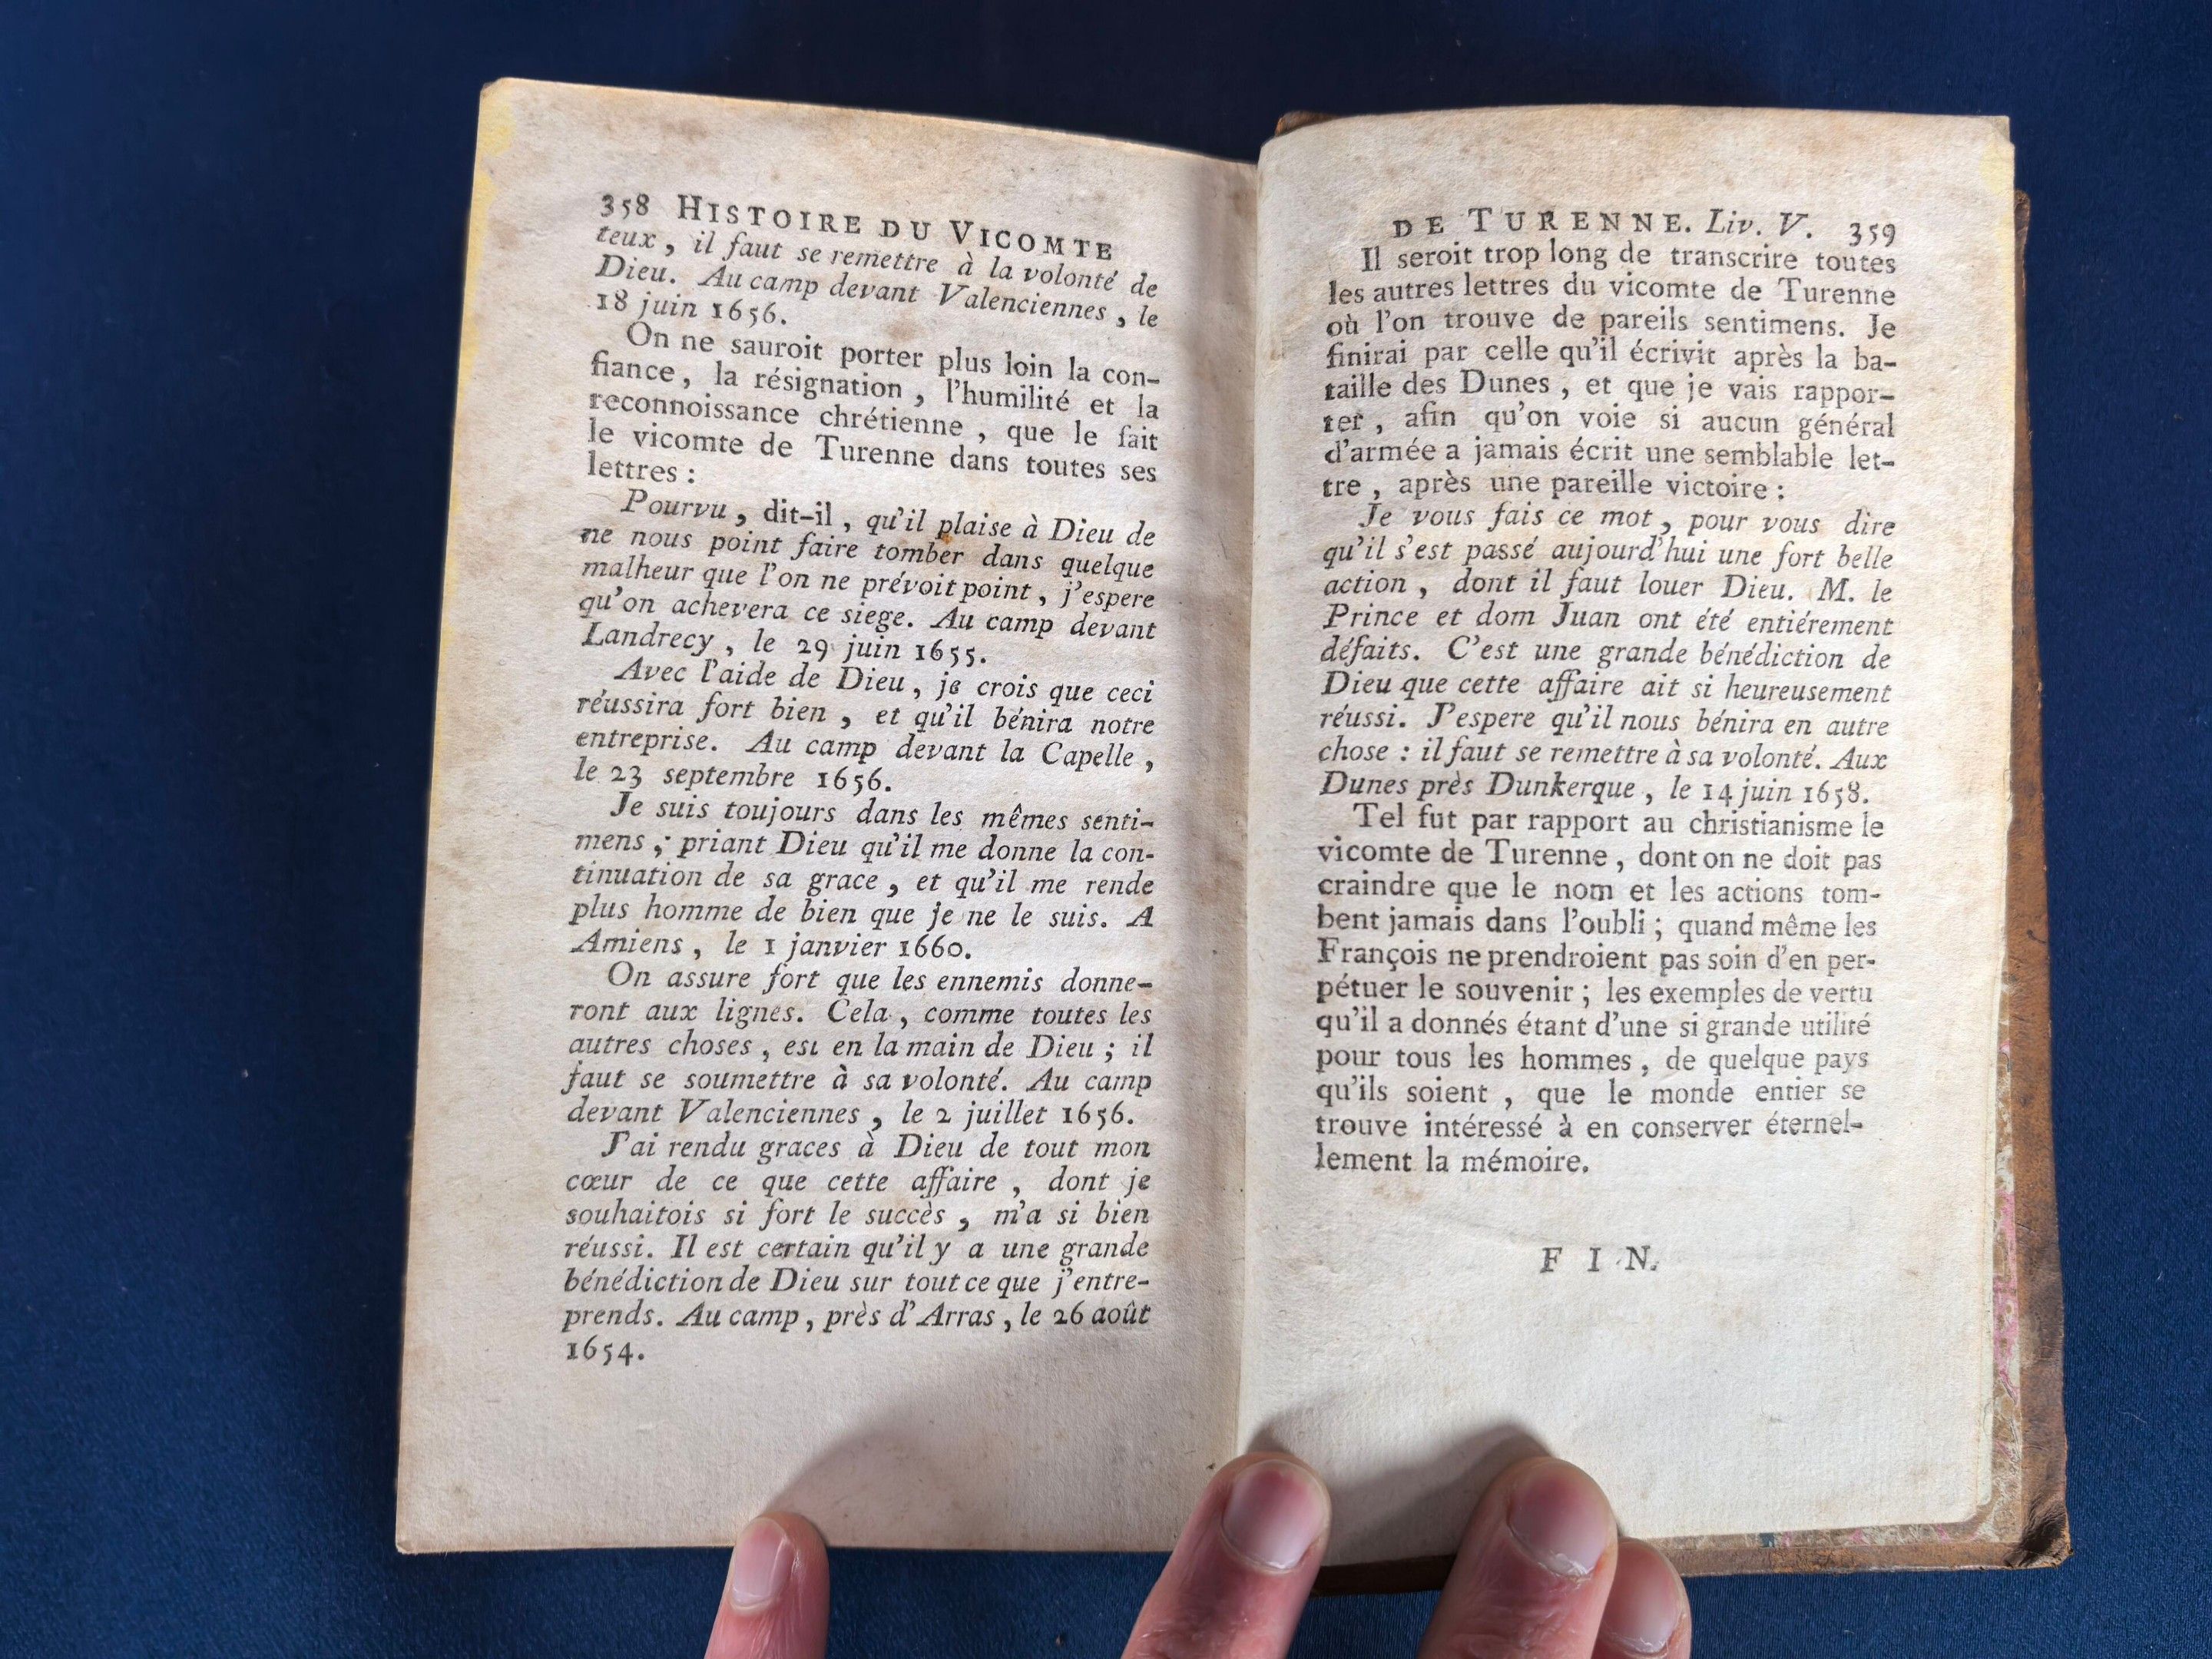 358 HISTOIRE DU VICOMTE
teux, il faut se remettre à la volonté de
Dieu. Au camp devant Valenciennes, le
18 juin 1656.
On ne sauroit porter plus loin la con-
fiance, la résignation, l'humilité et la
reconnoissance chrétienne, que le fait
le vicomte de Turenne dans toutes ses
lettres :
Pourvu, dit-il, qu'il plaise à Dieu de
ne nous point faire tomber dans quelque
malheur que l'on ne prévoit point, j'espere
qu'on achevera ce siege. Au camp devant
Landrecy, le 29 juin 1655.
Avec l'aide de Dieu, je crois que ceci
réussira fort bien, et qu'il bénira notre
entreprise. Au camp devant la Capelle,
le 23 septembre 1656.
Je suis toujours dans les mêmes senti-
mens ; priant Dieu qu'il me donne la con-
tinuation de sa grace, et qu'il me rende
plus homme de bien que je ne le suis. A
Amiens, le 1 janvier 1660.
On assure fort que les ennemis donne-
ront aux lignes. Cela, comme toutes les
autres choses, est en la main de Dieu ; il
faut se soumettre à sa volonté. Au camp
devant Valenciennes, le 2 juillet 1656.
J'ai rendu graces à Dieu de tout mon
cœur de ce que cette affaire, dont je
souhaitois si fort le succès, m'a si bien
réussi. Il est certain qu'il y a une grande
bénédiction de Dieu sur tout ce que j'entre-
prends. Au camp, près d'Arras, le 26 août
1654.
DE TURENNE. Liv. V. 359
Il seroit trop long de transcrire toutes
les autres lettres du vicomte de Turenne
où l'on trouve de pareils sentimens. Je
finirai par celle qu'il écrivit après la ba-
taille des Dunes, et que je vais rappor-
ter, afin qu'on voie si aucun général
d'armée a jamais écrit une semblable let-
tre, après une pareille victoire :
Je vous fais ce mot, pour vous dire
qu'il s'est passé aujourd'hui une fort belle
action, dont il faut louer Dieu. M. le
Prince et dom Juan ont été entiérement
défaits. C'est une grande bénédiction de
Dieu que cette affaire ait si heureusement
réussi. J'espere qu'il nous bénira en autre
chose : il faut se remettre à sa volonté. Aux
Dunes près Dunkerque, le 14 juin 1658.
Tel fut par rapport au christianisme le
vicomte de Turenne, dont on ne doit pas
craindre que le nom et les actions tom-
bent jamais dans l'oubli ; quand même les
François ne prendroient pas soin d'en per-
pétuer le souvenir ; les exemples de vertu
qu'il a donnés étant d'une si grande utilité
pour tous les hommes, de quelque pays
qu'ils soient, que le monde entier se
trouve intéressé à en conserver éternel-
lement la mémoire.
FIN.